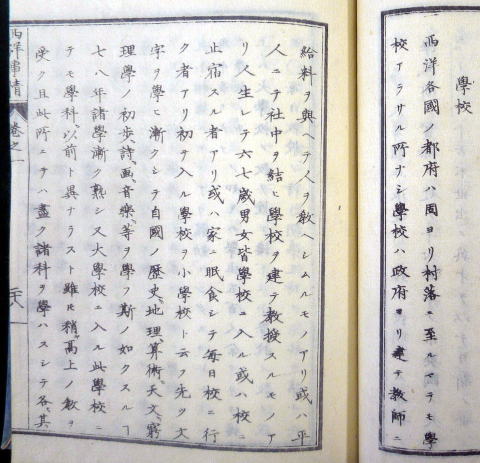 學校
西洋各國ノ都府ハ固ヨリ村落ニ至ルマテモ學
校アラサル所ナシ學校ハ政府ヨリ建テ教師ニ
給料ヲ與ヘテ人ヲ教ヘシムルモノアリ或ハ平
人ニテ社中ヲ結ヒ學校ヲ建テ教授スルモノア
リ人生レテ六七歳男女皆學校ニ入ル或ハ校ニ
止宿スル者アリ或ハ家ニ眠食シテ毎日校ニ行
ク者アリ初テ入ル學校ヲ小學校ト云フ先ツ文
字ヲ學ヒ漸クシテ自國ノ歴史、地理、算術、天文、窮
理學ノ初歩、詩、画、音樂、等ヲ學フ斯ノ如クスルヿ
七八年諸學漸ク熟シ又大學校ニ入ル此學校ニ
テモ學科ハ以前ト異ナラスト雖モ稍高上ノ教ヲ
受ク且此所ニテハ盡ク諸科ヲ學ハスシテ各其
西洋事情 卷之一